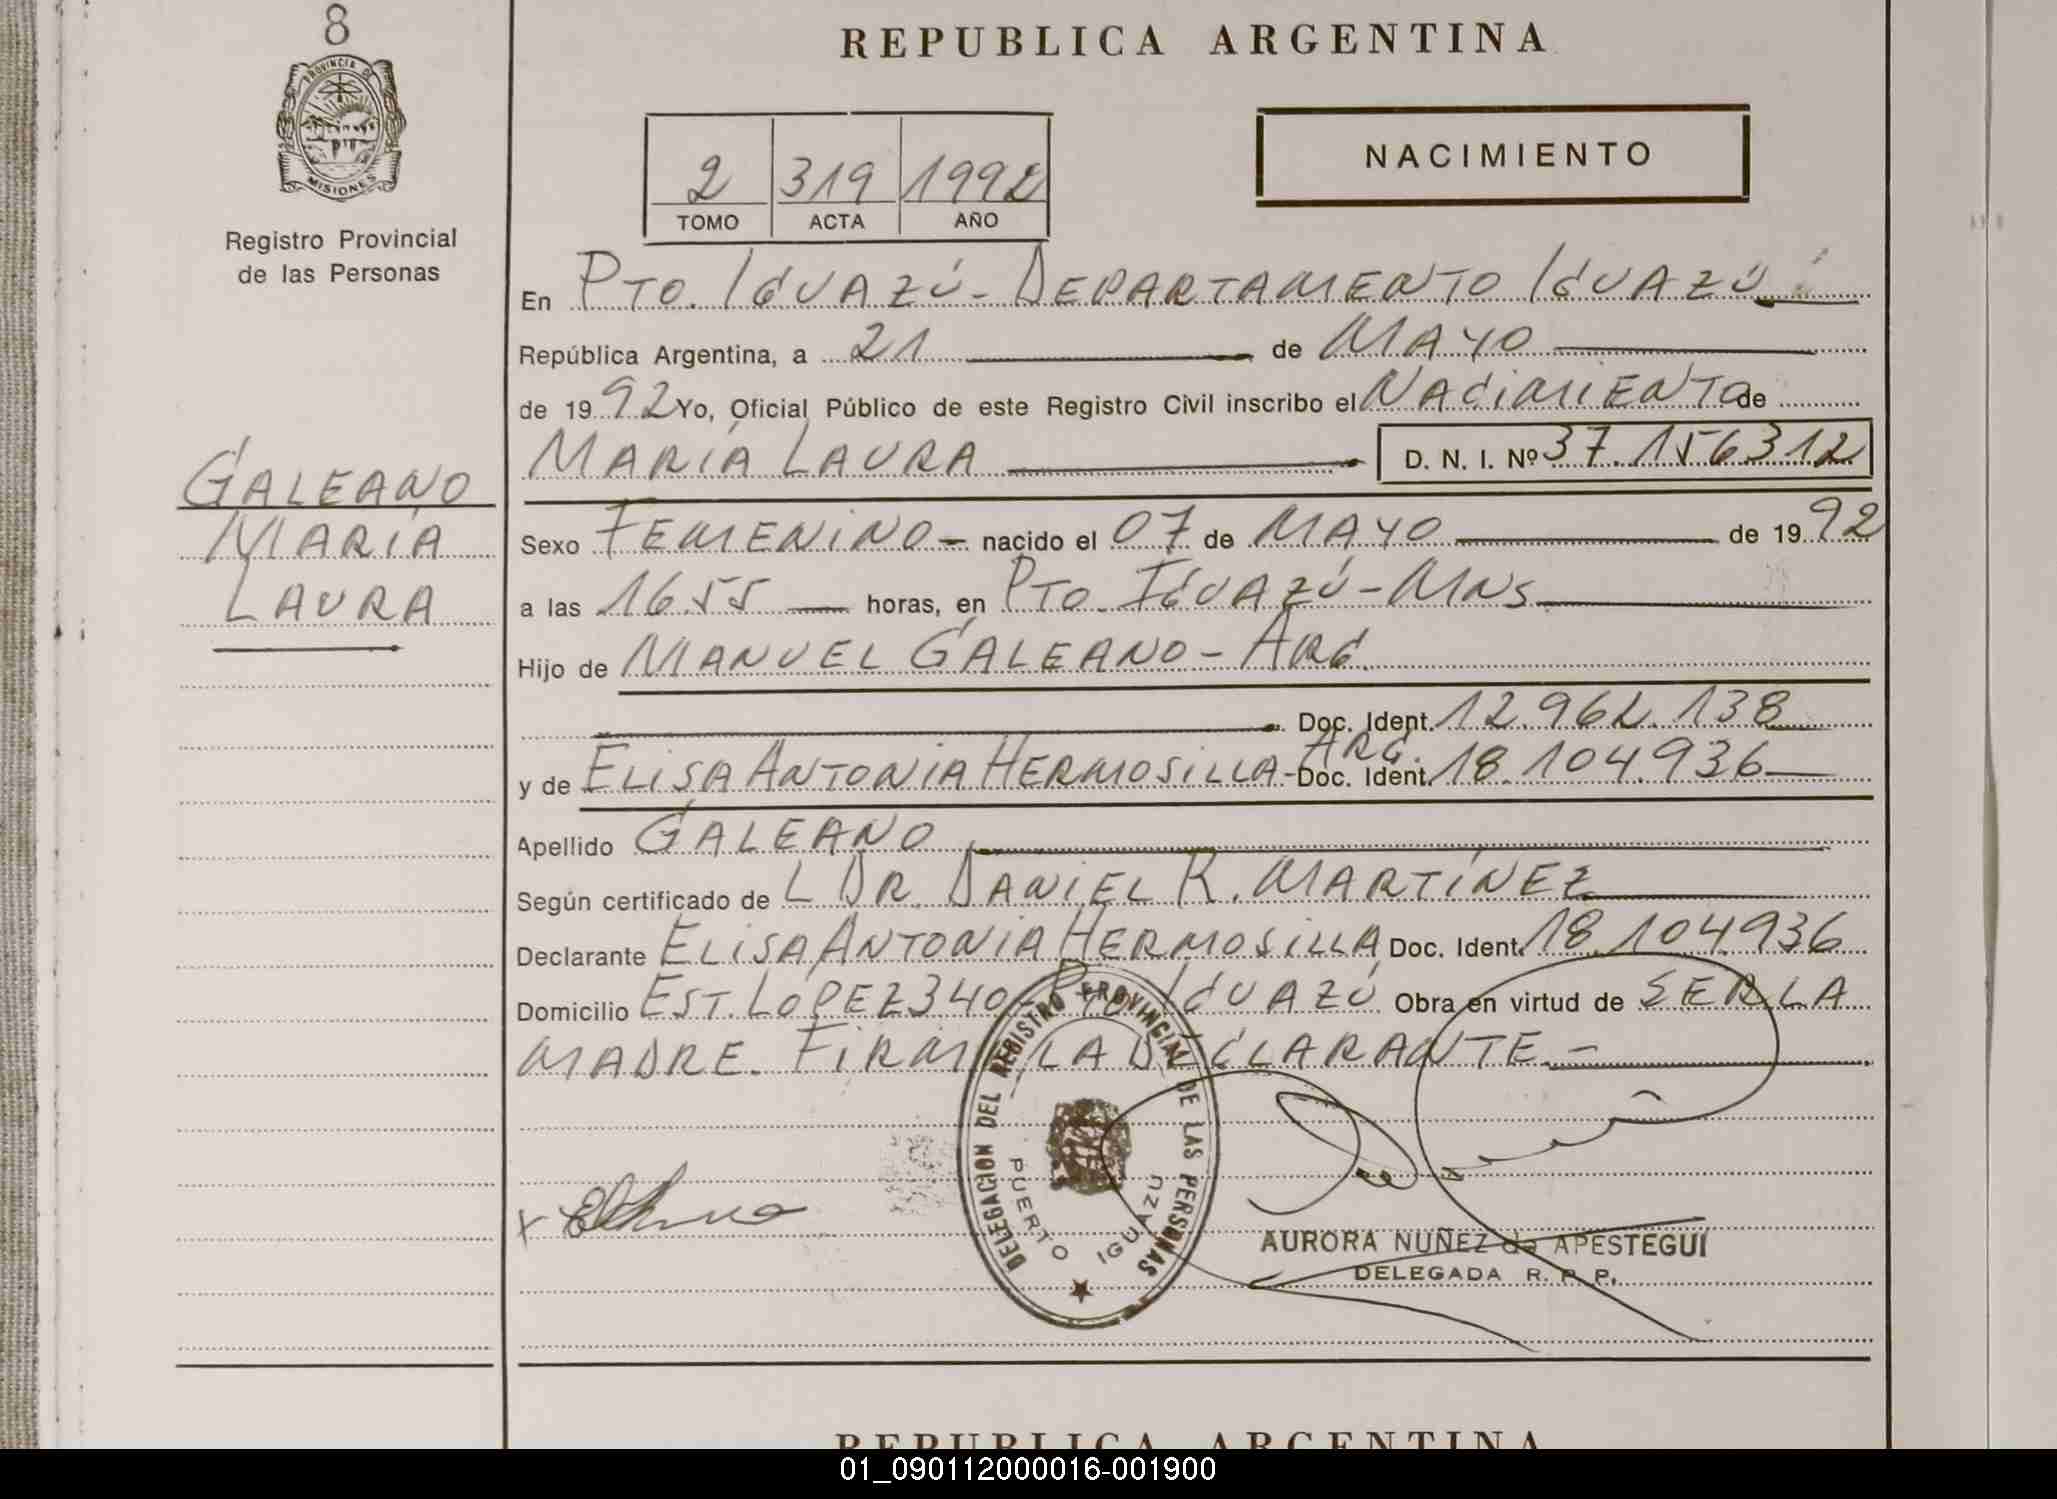 8
PROVINCIA DE
MISIONES
Registro Provincial
de las Personas
GALEANO
MARÍA
LAURA
REPUBLICA ARGENTINA
2 319 1992
TOMO ACTA AÑO
NACIMIENTO
En PTO. IGUAZÚ - DEPARTAMENTO IGUAZÚ
República Argentina, a 21 de MAYO
de 1992 Yo, Oficial Público de este Registro Civil inscribo el NACIMIENTO de
MARÍA LAURA D. N. I. Nº 37.156312
Sexo FEMENINO - nacido el 07 de MAYO de 1992
a las 16.55 horas, en PTO. IGUAZÚ - MNS
Hijo de MANUEL GALEANO - ARG.
Doc. Ident. 12.962.138
y de ELISA ANTONIA HERMOSILLA - ARG. Doc. Ident. 18.104.936
Apellido GALEANO
Según certificado de L DR. DANIEL R. MARTÍNEZ
Declarante ELISA ANTONIA HERMOSILLA Doc. Ident. 18.104.936
Domicilio EST. LÓPEZ 340 - PTO IGUAZÚ Obra en virtud de SER LA
MADRE. FIRMA LA DECLARANTE. -
DELEGACION DEL REGISTRO PROVINCIAL DE LAS PERSONAS
PUERTO IGUAZU
AURORA NUÑEZ de APESTEGUI
DELEGADA R. P. P.
REPUBLICA ARGENTINA
01_090112000016-001900